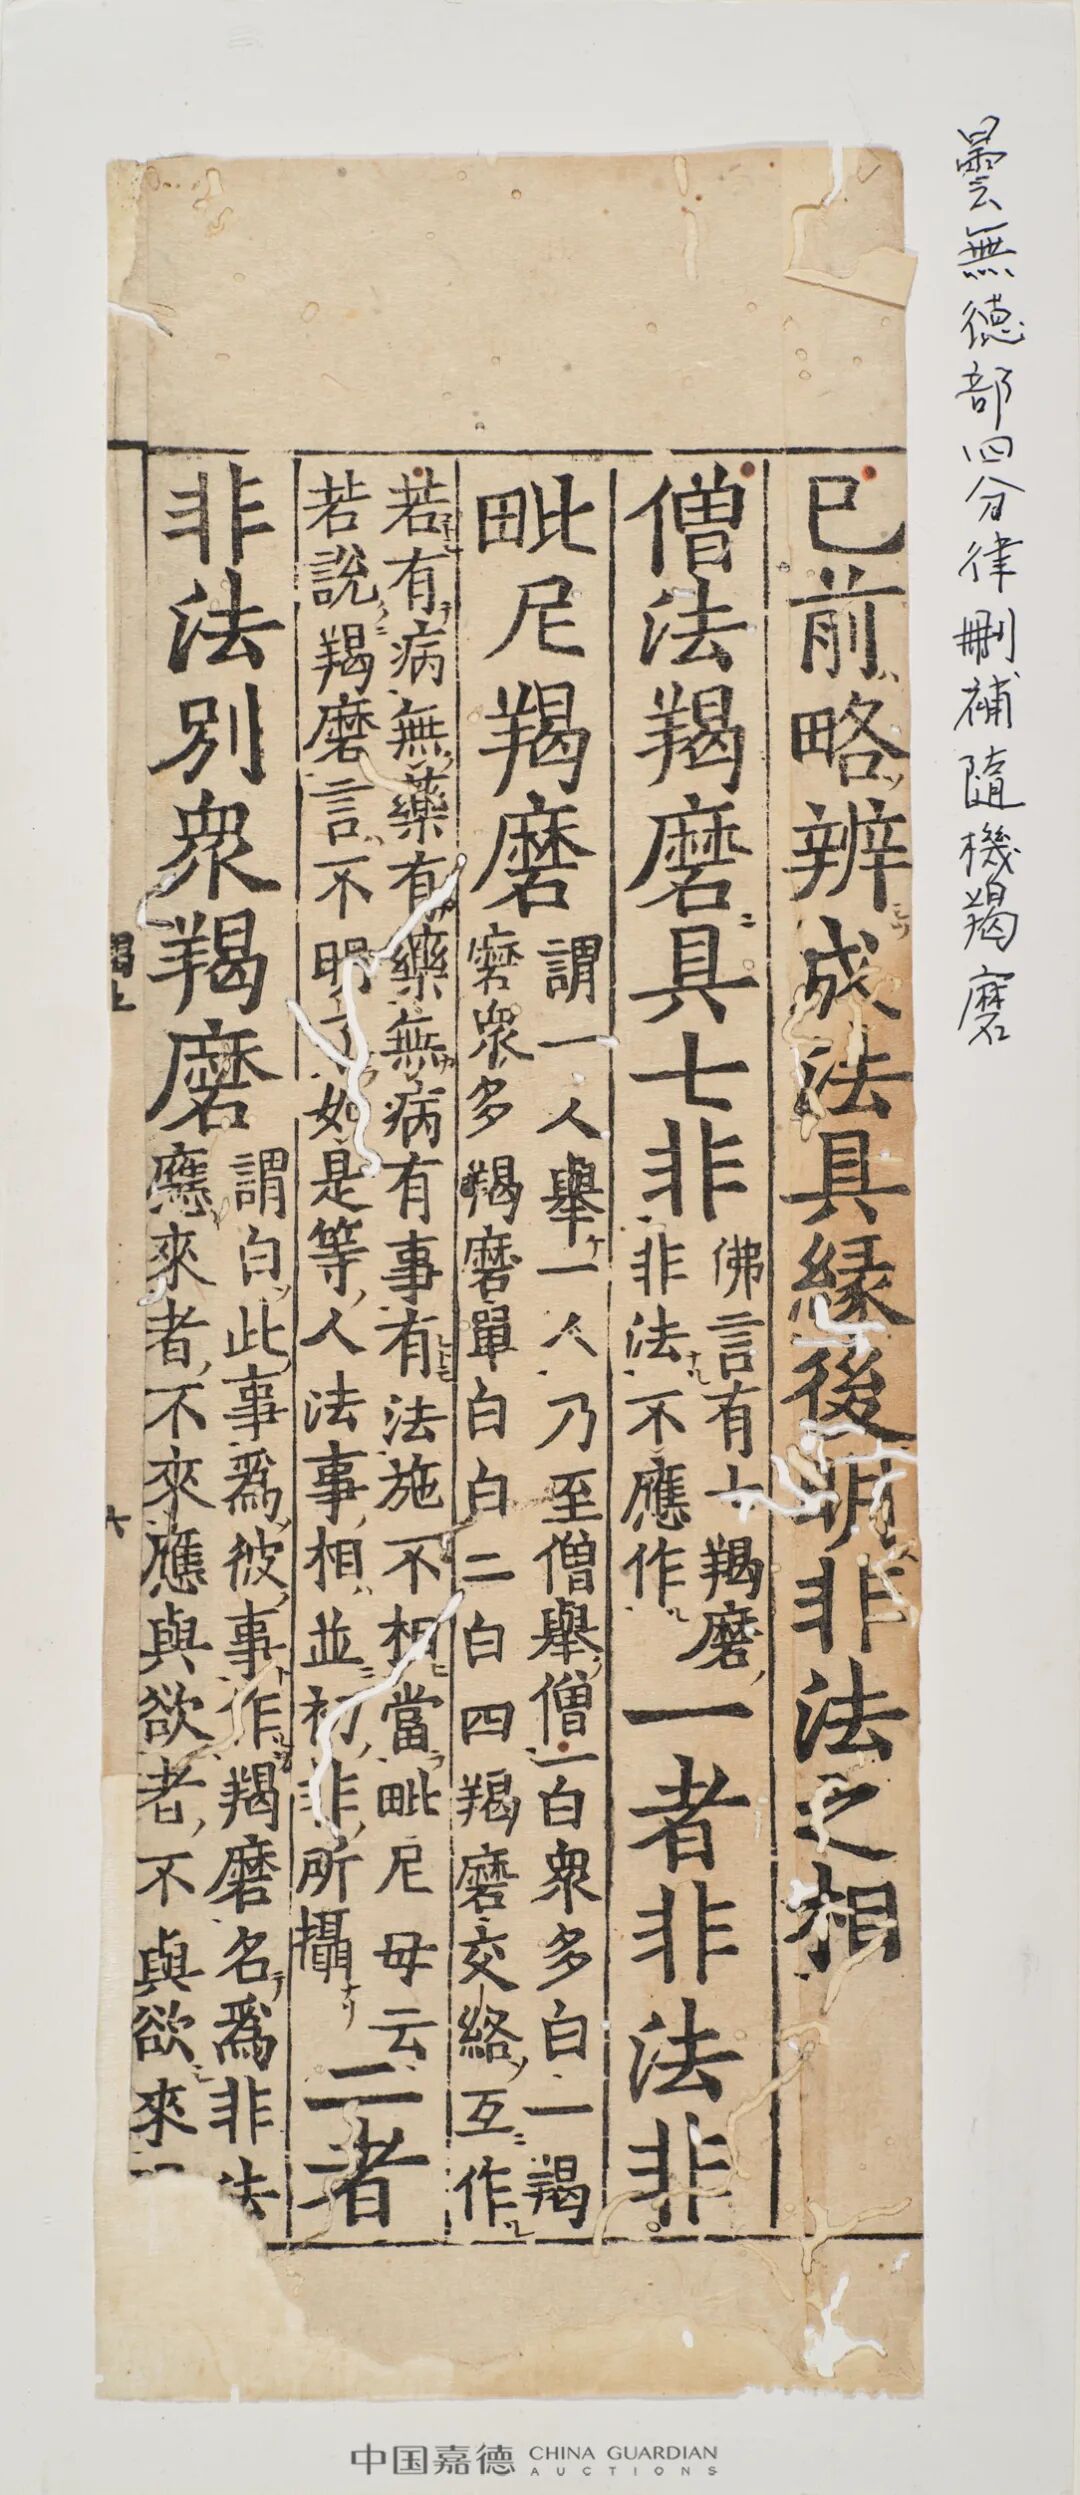 曇無德部四分律刪補隨機羯磨
已前略辨成法具緣後明非法之相
僧法羯磨具七非
佛言有七羯磨
非法不應作
一者非法非
毗尼羯磨
謂一人舉一人乃至僧舉僧一白衆多白一羯
磨衆多羯磨單白白二白四羯磨交絡互作
若有病無藥有藥無病有事有法施不相當毗尼母云
若說羯磨言不明了如是等人法事相並初非所攝
二者
非法別衆羯磨
謂白此事爲彼事作羯磨名爲非法
應來者不來應與欲者不與欲來
羯上
六
中国嘉德 CHINA GUARDIAN
AUCTIONS